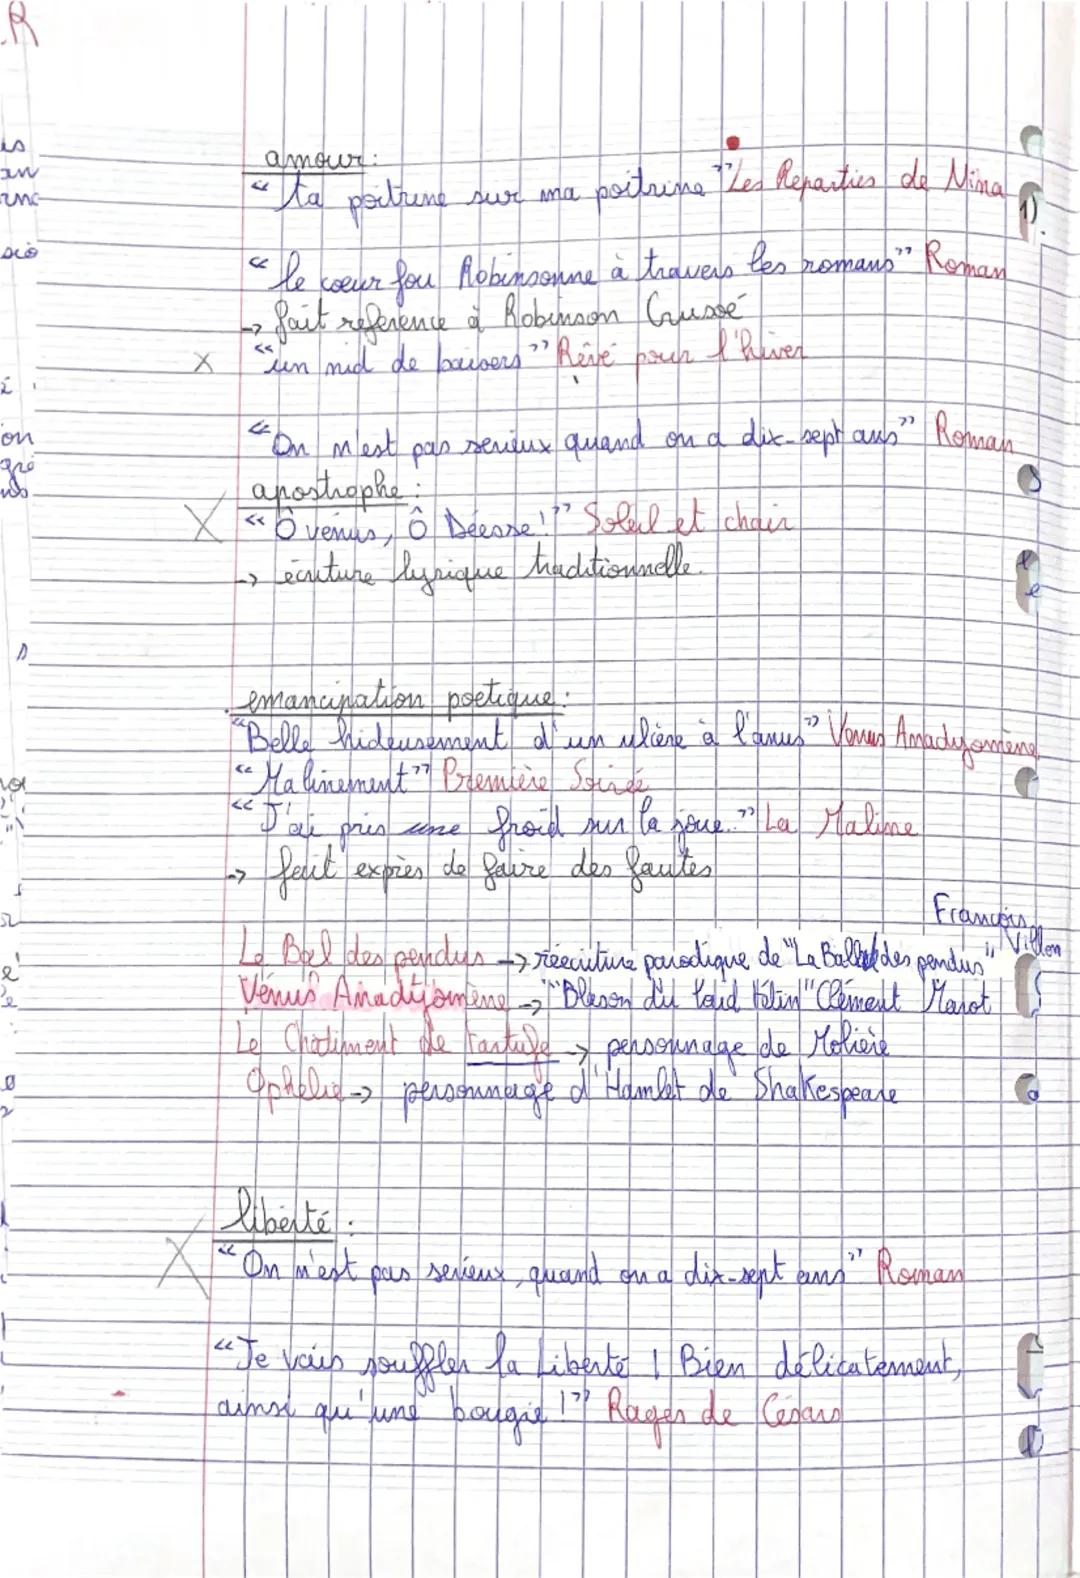 R
amour :
"ta poitrine sur ma poitrine" Les Reparties de Nina
1).
"le cœur fou Robinsonne à travers les romans" Roman
-> fait reference à Robinson Crusoé
X "un nid de baisers" Rêvé pour l'hiver
"On n'est pas serieux quand on a dix-sept ans" Roman
apostrophe :
X "Ô venus, Ô Déesse !" Soleil et chair
-> écriture lyrique traditionnelle.
emancipation poetique :
"Belle hideusement d'un ulcère à l'anus" Venus Anadyomène
"Malinement" Première Soirée
"J'ai pris une froid sur la joue.." La Maline
-> fait exprès de faire des fautes
François Villon
Le Bal des pendus -> réécriture parodique de "La Ballade des pendus"
Vénus Anadyomène -> "Blason du laid tétin" Clément Marot
Le Chatiment de tartufe -> personnage de Molière
Ophelie -> personnage d'Hamlet de Shakespeare
liberté :
X "On n'est pas serieux, quand on a dix-sept ans" Roman
"Je vais souffler la Liberté | Bien délicatement,
ainsi qu'une bougie !" Rages de Césars